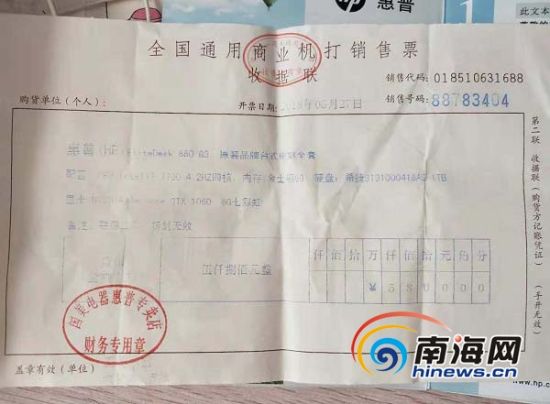 惠普
此文本
全国通用商业机打销售票
收据联
销售代码: 018510631688
购货单位（个人）:
开票日期: 2018年05月27日
销售号码: 88783404
惠普(HP) EliteDesk 880 G3 原装品牌台式电脑全套
配置
4.2HZ四核, 内存
硬盘: 希捷
1TB
显卡
GTX 1060 6G七彩虹
备注
涂划无效
伍仟捌佰元整
仟佰拾万仟佰拾元角分
¥580000
第二联 收据联（购货方记账凭证）（手开无效）
国美电器惠普专卖店
财务专用章
盖章有效（单位）
南海网
www.hinews.cn
www.hp.c